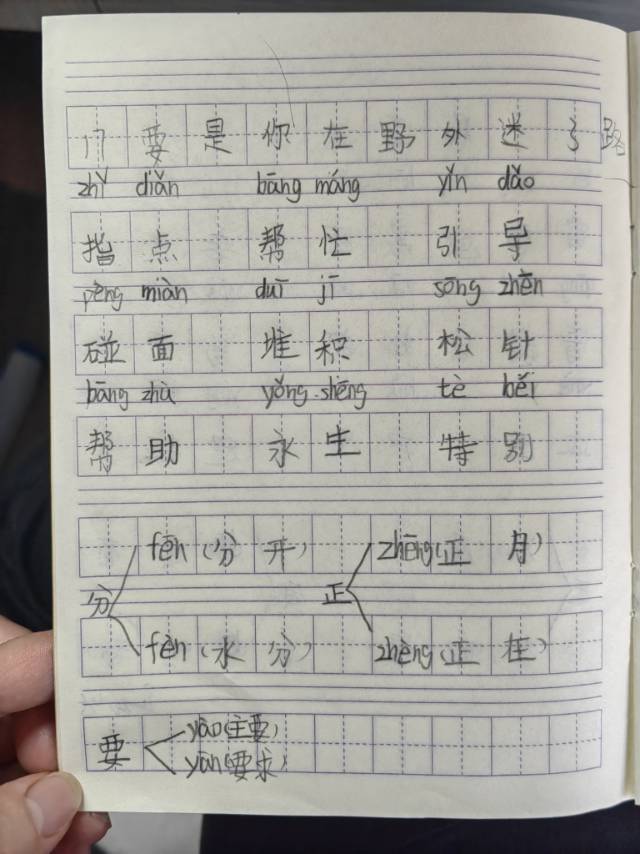 17 要是你在野外迷了路
zhǐ diǎn bāng máng yǐn dǎo
指点 帮忙 引导
pèng miàn duī jī sōng zhēn
碰面 堆积 松针
bāng zhù yǒng shēng tè běi
帮助 永生 特别
fēn(分开) zhēng(正月)
分 正
fèn(水分) zhèng(正在)
yào(主要)
要
yāo(要求)